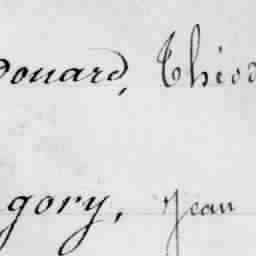 douard, Théod
gory, Jean